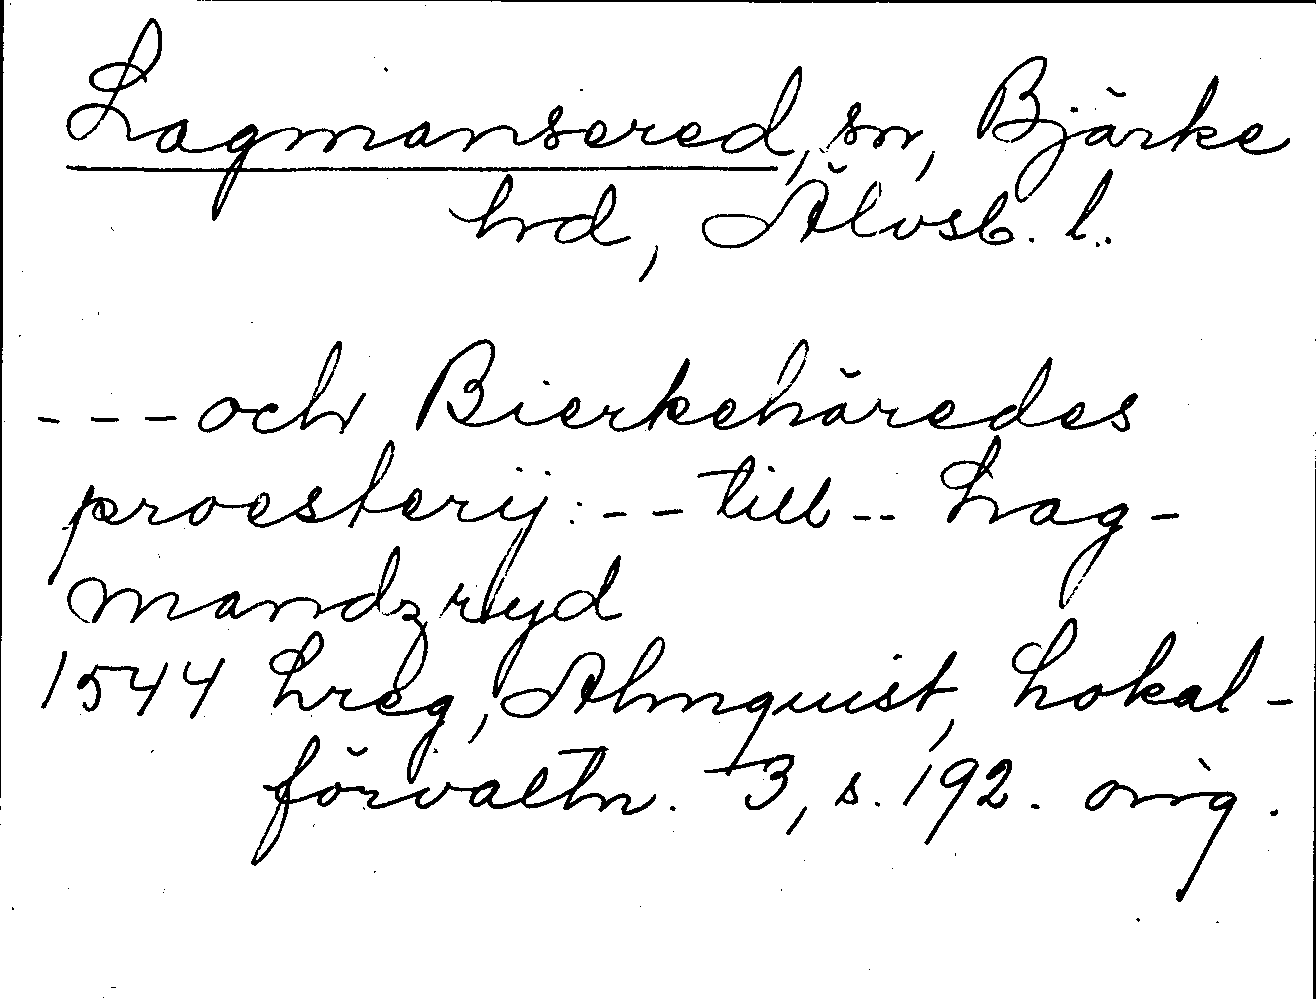 Lagmansered, sn, Bjärke
hrd, Älvsb. l.
--- och Bierkehäredes
proesterij: -- till -- Lag-
mandzryd
1544 Lreg, Almquist, Lokal-
förvaltn. 3, s. 192. orig.